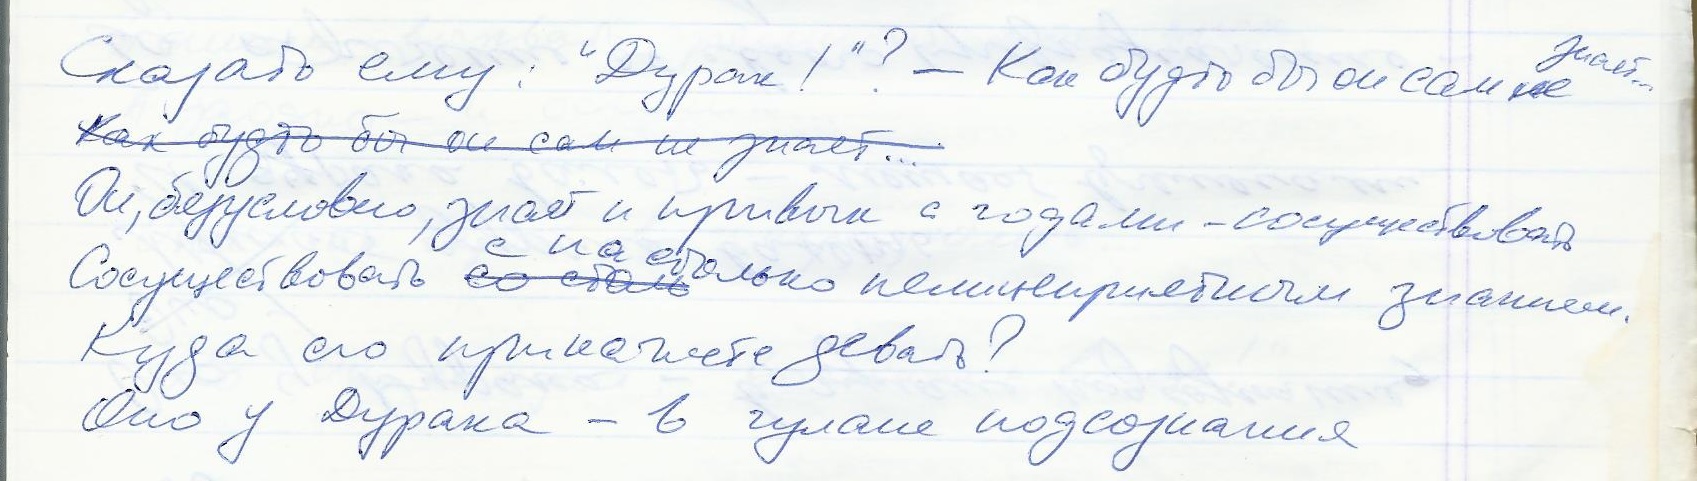 Сказать ему: "Дурак!"? – Как будто бы он сам не знает...
Как будто бы он сам не знает...
Он, безусловно, знает и привык с годами – сосуществовать
Сосуществовать со столь с настолько неприятным знанием.
Куда его прикажете девать?
Оно у Дурака – в чулане подсознания